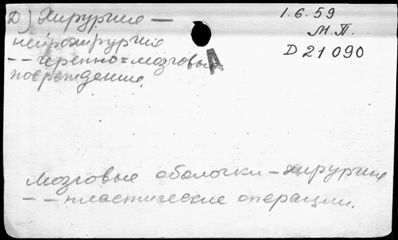 Д) Хирургия —
нейрохирургия
-- черепно-мозговые
повреждения.
1.6.59
М.П.
D 21 090
А
Мозговые оболочки - хирургия
-- пластические операции.